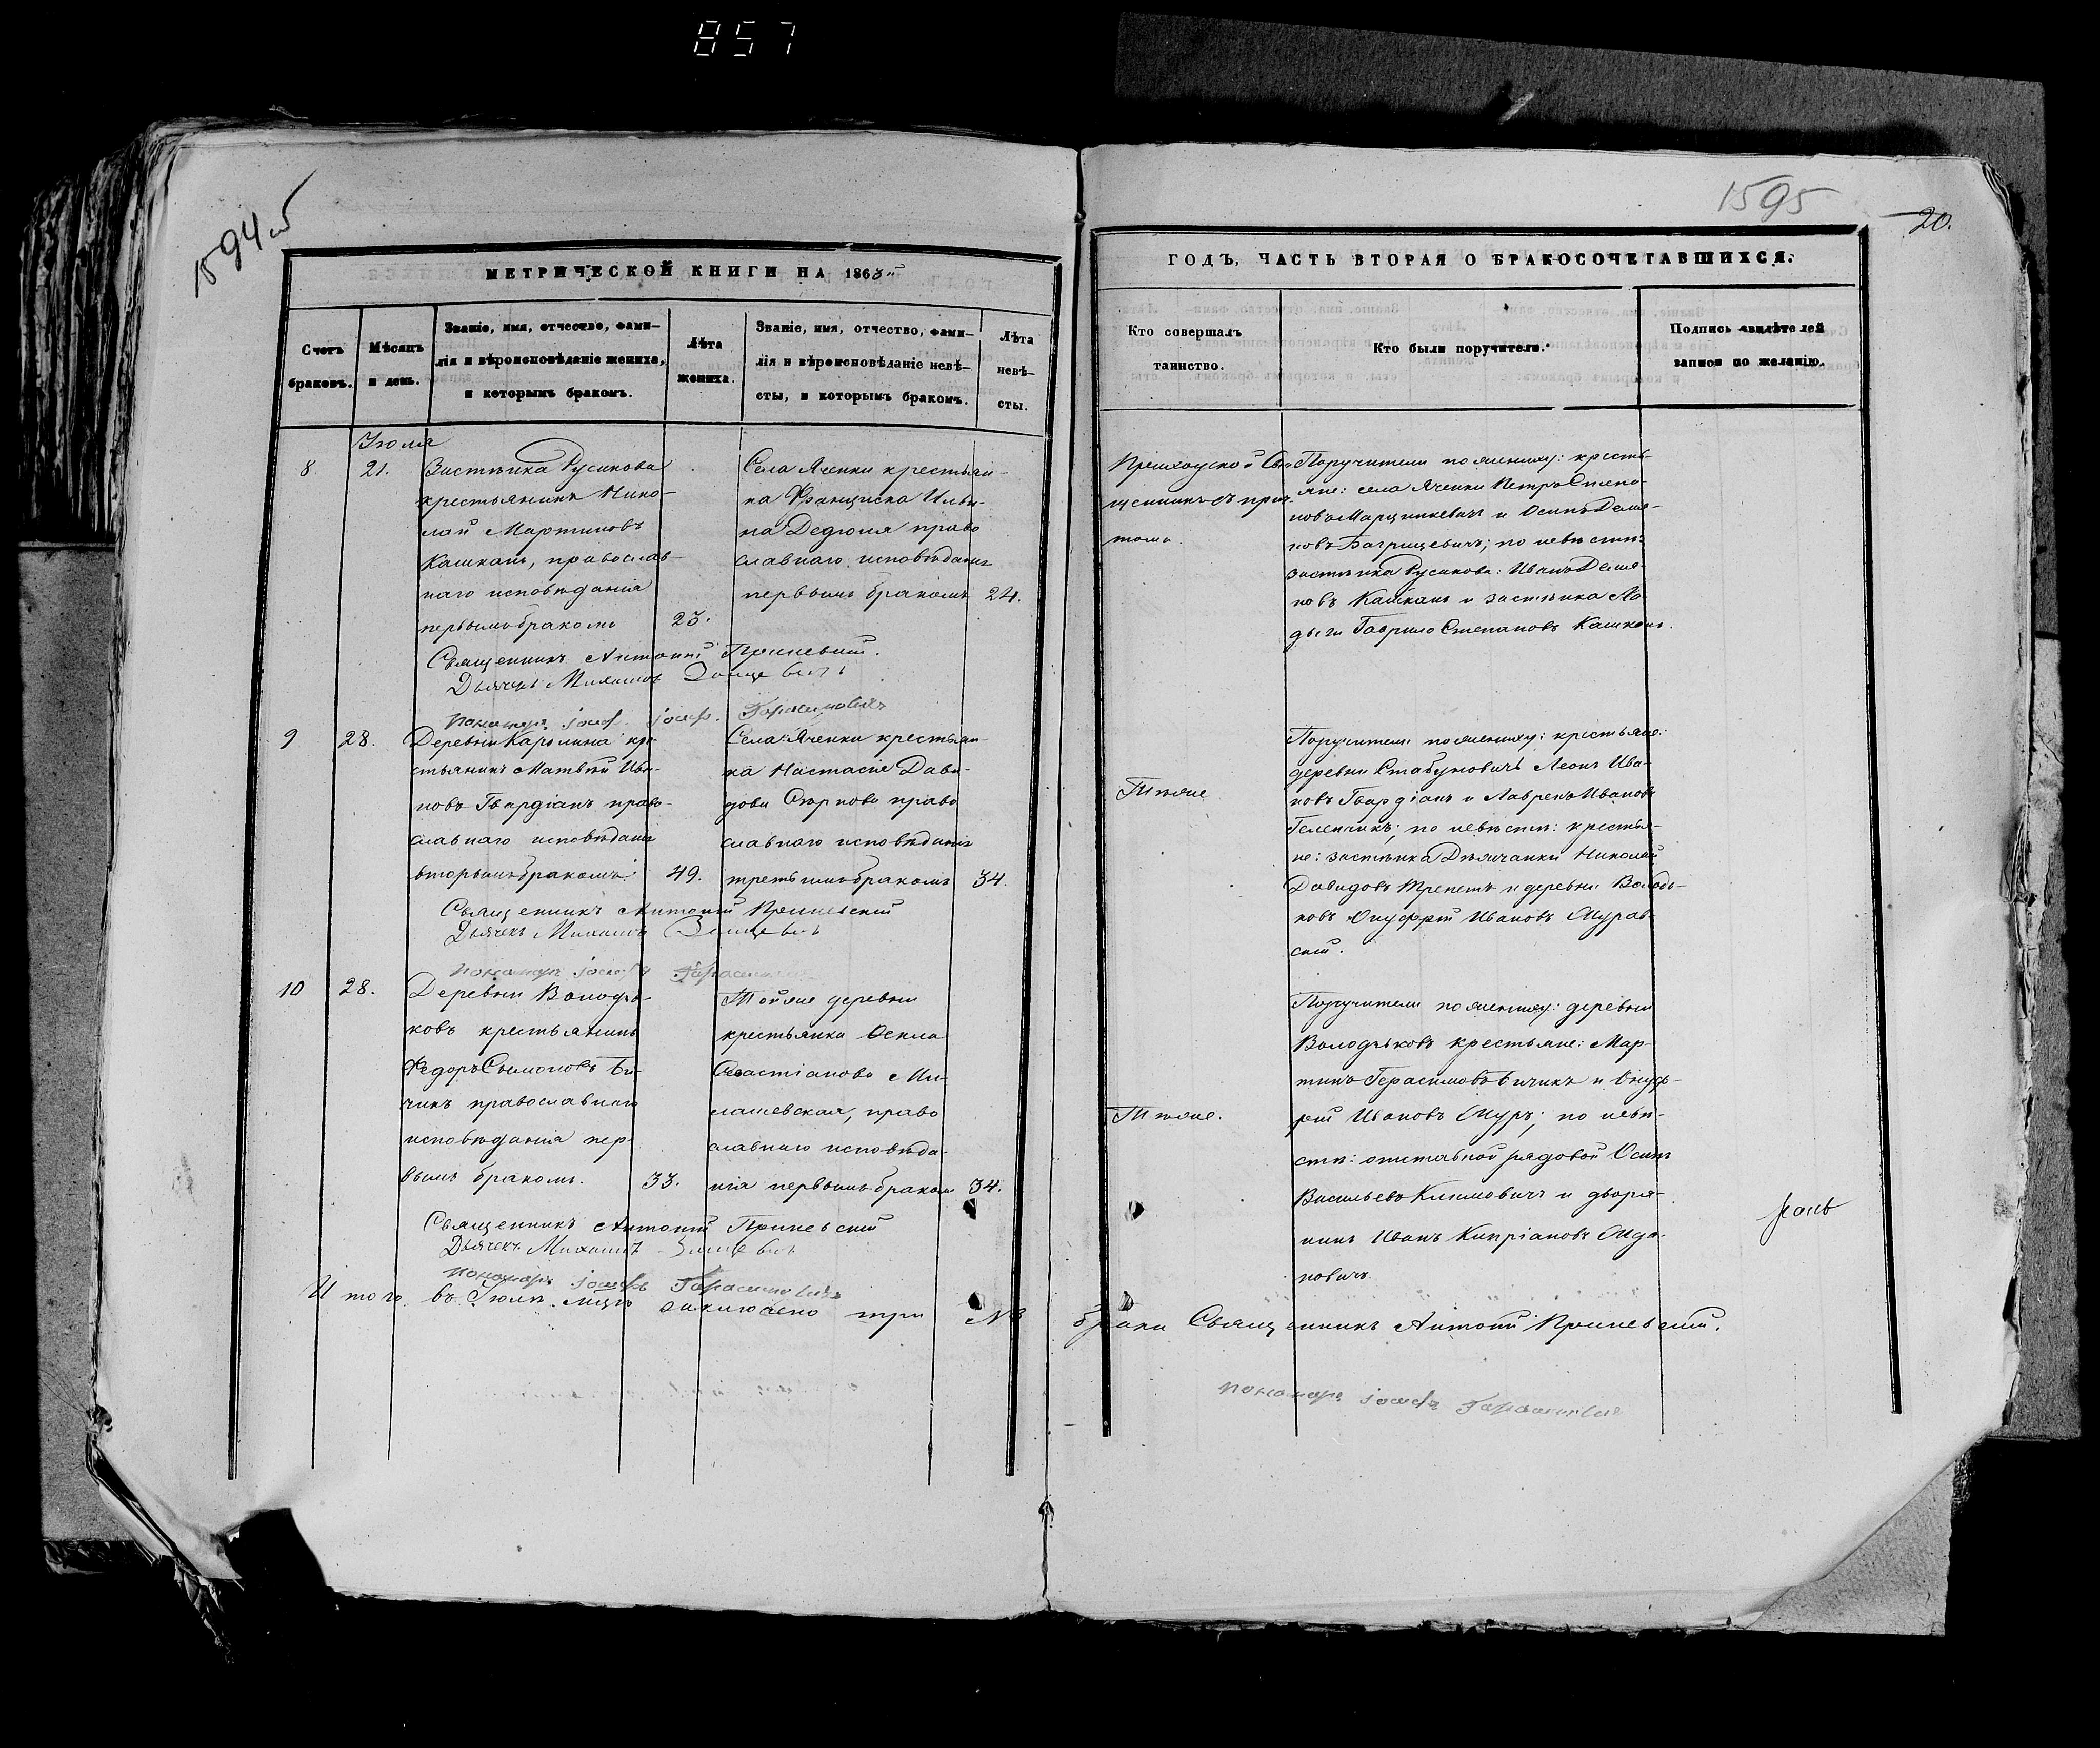 857
1594 об
1595
20.
МЕТРИЧЕСКОЙ КНИГИ НА 1863й
ГОДЪ, ЧАСТЬ ВТОРАЯ О БРАКОСОЧЕТАВШИХСЯ.
Счетъ
браковъ.
Мѣсяцъ
и день.
Званіе, имя, отчество, фами–
лія и вѣроисповѣданіе жениха,
и которымъ бракомъ.
Лѣта
жениха.
Званіе, имя, отчество, фами–
лія и вѣроисповѣданіе невѣ–
сты, и которымъ бракомъ.
Лѣта
невѣ–
сты.
Кто совершалъ
таинство.
Кто были поручители.
Подпись свидѣтелей
записи по желанію.
Іюля
8
21.
Застѣнка Русинова
крестьянинъ Нико-
лай Мартиновъ
Кашканъ, православ-
наго исповѣданія
первымъ бракомъ
23.
Села Яченки крестьян-
ка Франциска Ильи-
на Дедюля право
славнаго исповѣданія
первымъ бракомъ
24.
Приходской Свя
щенникъ съ прич
томъ.
Поручители по жениху: кресть-
яне: села Яченки Петръ Степа-
новъ Марцинкевичъ и Осипъ Демья-
новъ Багрицевичъ; по невѣстѣ:
застѣнка Русинова: Иванъ Демья-
новъ Кашканъ и застѣнка Ла-
дыги Гаврило Степановъ Кашканъ.
Священникъ Антоній Прилевскій.
Дьячекъ Михаилъ
пономарь Іосифъ Гарасимовичъ
9
28.
Деревни Каролина кре-
стьянинъ Матвѣй Ива-
новъ Гвардіанъ право-
славнаго исповѣданія
вторымъ бракомъ.
49.
Села Яченки крестьян-
ка Настасія Дави-
дова право
славнаго исповѣданія
третьимъ бракомъ
34.
Тѣже
Поручители по жениху: крестьяне:
деревни Стабуновичъ Леонъ Ива-
новъ Гвардіанъ и Лавренъ Ивановъ
Геленчикъ; по невѣстѣ: крестья-
не: застѣнка Николай
Давидовъ Трепетъ и деревни Володь-
ковъ Онуфрій Ивановъ Журав-
скій.
Священникъ Антоній Прилевскій
Дьячекъ Михаилъ
пономарь Іосифъ
10
28.
Деревни Володь-
ковъ крестьянинъ
Федоръ Сымоновъ Би-
чикъ православнаго
исповѣданія пер-
вымъ бракомъ.
33.
Тойже деревни
крестьянка Текла
Севастіанова Ми-
лашевская, право
славнаго исповѣда-
нія первымъ бракомъ
34.
Тѣже.
Поручители по жениху: деревни
Володьковъ крестьяне: Мар-
тинъ Герасимовъ Бичикъ и Онуф-
рій Ивановъ Журъ; по невѣ-
стѣ: отставной рядовой Осипъ
Васильевъ Климовичъ и дворя-
нинъ Иванъ Кипріановъ Жда-
новичъ.
Священникъ Антоній Прилевскій
Дьячекъ Михаилъ
пономарь Іосифъ Гарасимовичъ
Итого въ Іюлѣ мцѣ заключено три № 3 браки Священникъ Антоній Прилевскій.
пономарь Іосифъ Гарасимовичъ